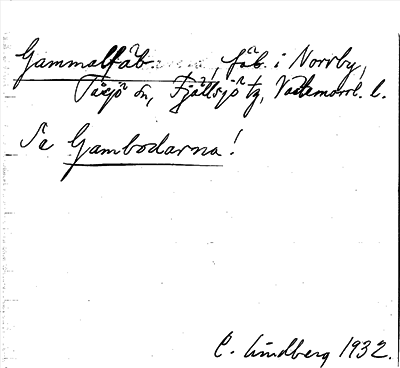 Gammalfäb., fäb. i Norrby,
Tåsjö sn, Fjällsjö tg, Västernorrl. l.
Se Gambodarna!
C. Lindberg 1932.